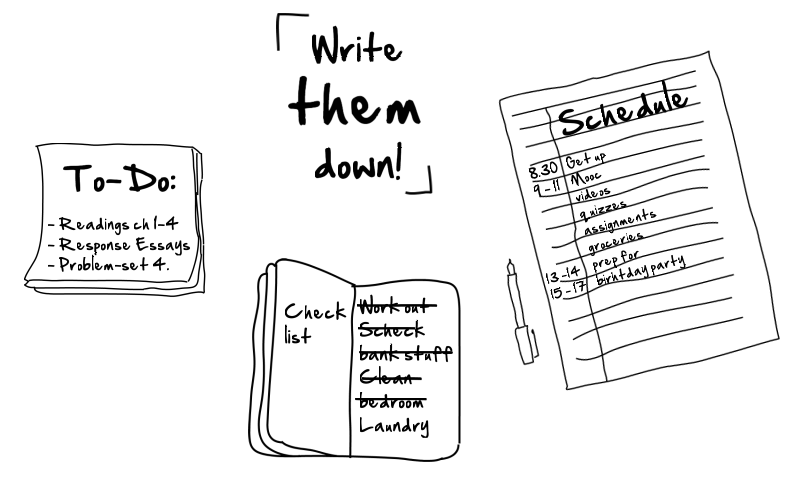 Write
them
down!
To-Do:
- Readings ch 1-4
- Response Essays
- Problem-set 4.
Check
list
Work out
Scheck
bank stuff
Clean
bedroom
Laundry
Schedule
8.30 Get up
9-11 Mooc
videos
quizzes
assignments
groceries
13-14 prep for
15-17 birhtday party